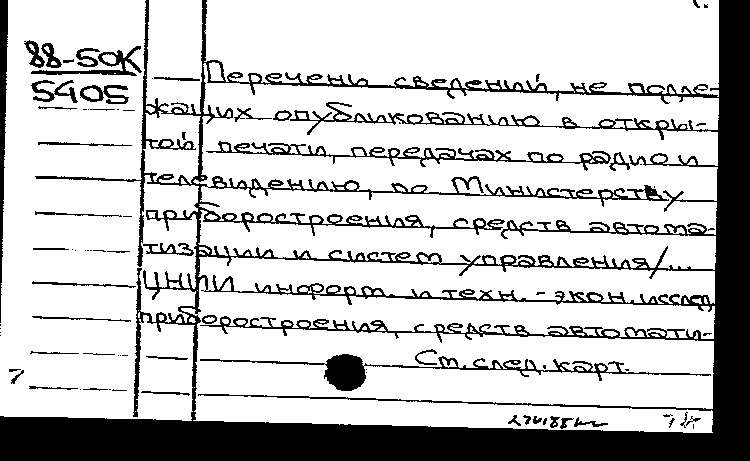 88-50К
5405
Перечени сведений, не подле-
жащих опубликованию в откры-
той печати, передачах по радио и
телевидению, по Министерству
приборостроения, средств автома-
тизации и систем управления/...
ЦНИИ информ. и техн.-экон. исслед.
приборостроения, средств автомати-
См. след. карт.
7